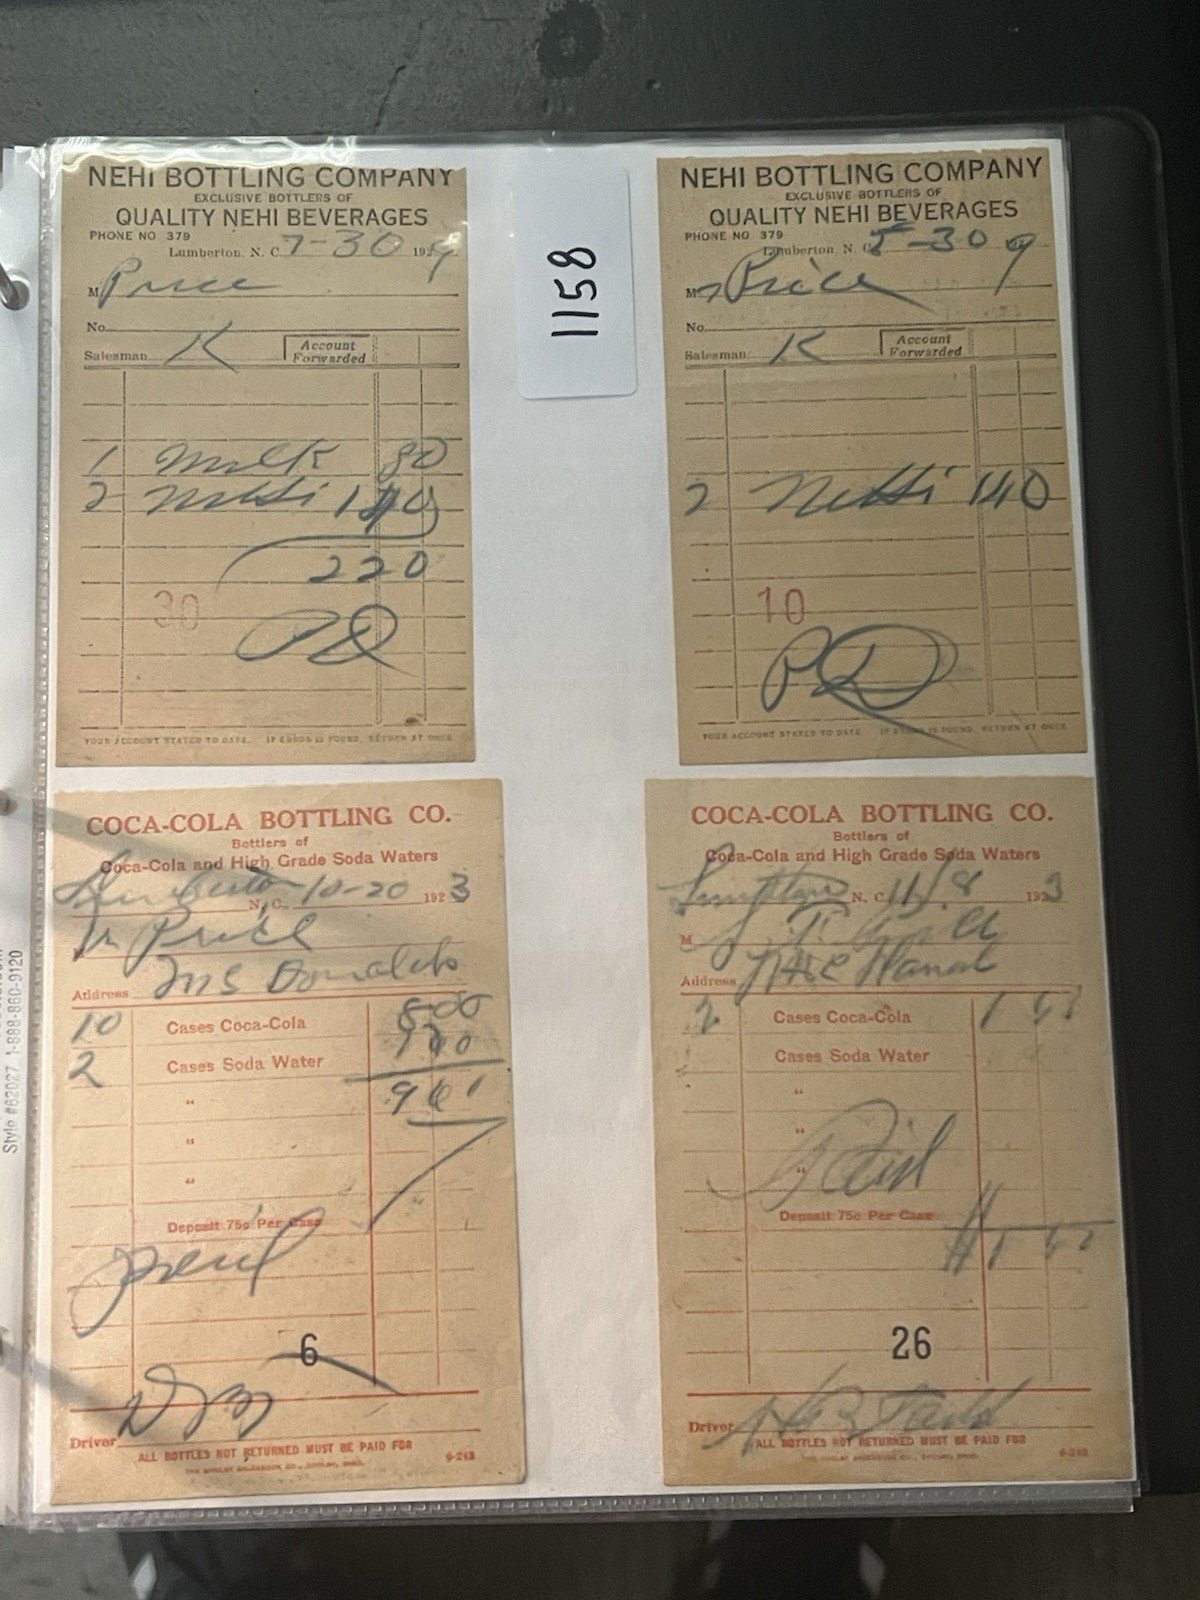 NEHI BOTTLING COMPANY
EXCLUSIVE BOTTLERS OF
QUALITY NEHI BEVERAGES
PHONE NO 379
Lumberton, N. C. 7-30 192 9
M Price
No.
Salesman K
Account
Forwarded
1 Milk 80
2 Nehi 140
220
30
PD
YOUR ACCOUNT STATED TO DATE. IF ERROR IS FOUND, RETURN AT ONCE
1158
NEHI BOTTLING COMPANY
EXCLUSIVE BOTTLERS OF
QUALITY NEHI BEVERAGES
PHONE NO 379
Lumberton N. C. 5-30 9
M Price
No.
Salesman K
Account
Forwarded
2 Nehi 140
10
PD
YOUR ACCOUNT STATED TO DATE. IF ERROR IS FOUND, RETURN AT ONCE
COCA-COLA BOTTLING CO.
Bottlers of
Coca-Cola and High Grade Soda Waters
Lumberton N. C., 10-20 1923
M Price
Address
10 Cases Coca-Cola 800
2 Cases Soda Water
"
"
"
Deposit 75c Per Case
paid
6
Driver
ALL BOTTLES NOT RETURNED MUST BE PAID FOR
6-243
COCA-COLA BOTTLING CO.
Bottlers of
Coca-Cola and High Grade Soda Waters
N. C. 11/8 1923
M
Address
2 Cases Coca-Cola
Cases Soda Water
"
"
"
Paid
Deposit 75c Per Case
26
Driver
ALL BOTTLES NOT RETURNED MUST BE PAID FOR
6-243
Style #62027 1-888-860-9120